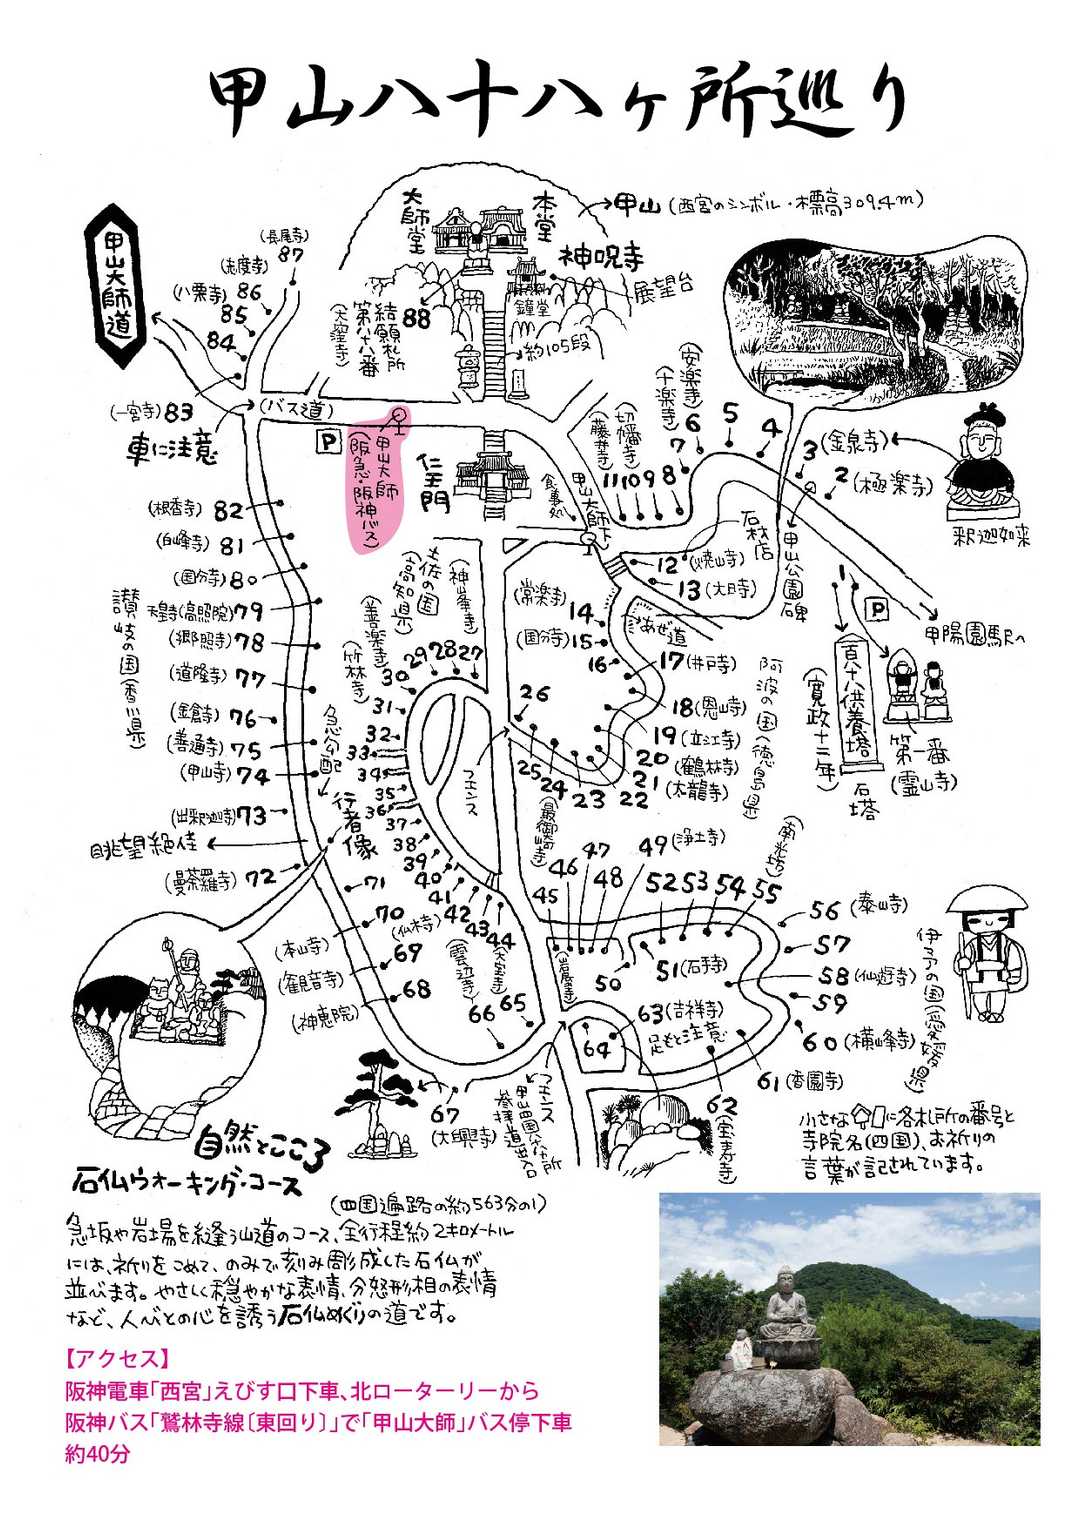 甲山八十八ヶ所巡り
甲山大師道
大師堂
本堂
甲山(西宮のシンボル・標高309.4m)
神呪寺
展望台
鐘堂
約105段
88
結願札所
第八十八番
(大窪寺)
(長尾寺)
87
(志度寺)
86
(八栗寺)
85
84
(一宮寺) 83
車に注意
(バス道)
P
甲山大師
(阪急・阪神バス)
仁王門
食事処
甲山大師下
(安楽寺)
(十楽寺)
切幡寺)
(藤井寺)
11 10 9 8 7 6 5 4 3
(金泉寺)
2 (極楽寺)
釈迦如来
石材店
12 (焼山寺)
13 (大日寺)
甲山公園碑
1
P
甲陽園駅へ
百八十八供養塔
(寛政十二年)
石塔
第一番
(霊山寺)
(常楽寺)
14
(国分寺) 15
16
あぜ道
17 (井戸寺)
18 (恩山寺)
19 (立江寺)
20 (鶴林寺)
21 (太龍寺)
22
23
24
25
26
阿波の国(徳島県)
(最御崎寺)
(根香寺) 82
(白峰寺) 81
(国分寺) 80
天皇寺(高照院) 79
(郷照寺) 78
(道隆寺) 77
(金倉寺) 76
(善通寺) 75
(甲山寺) 74
(出釈迦寺) 73
眺望絶佳
(曼荼羅寺) 72
讃岐の国(香川県)
急勾配
行者像
土佐の国
(高知県)
(神峯寺)
(善楽寺)
(竹林寺)
27
28
29
30
31
32
33
34
35
36
37
38
39
40
41
42
43
44
フェンス
71
70
(本山寺)
69
(観音寺)
68
(神恵院)
67
(大興寺)
(仏木寺)
(雲辺寺)
(大宝寺)
66
65
45
46
47
48
49 (浄土寺)
(岩屋寺)
50
51 (石手寺)
52 53 54 55
(南光坊)
56 (泰山寺)
57
58 (仙遊寺)
59
60 (横峰寺)
61 (香園寺)
62
(宝寿寺)
63 (吉祥寺)
足もと注意
64
伊予の国(愛媛県)
フェンス
小さな に各札所の番号と
寺院名(四国)、お祈りの
言葉が記されています。
自然とこころ
石仏ウォーキング・コース
(四国遍路の約563分の1)
急坂や岩場を縫う山道のコース、全行程約2キロメートル
には、祈りをこめて、のみで刻み彫成した石仏が
並べます。やさしく穏やかな表情、分怒形相の表情
など、人びとの心を誘う石仏めぐりの道です。
【アクセス】
阪神電車「西宮」えびす口下車、北ローターリーから
阪神バス「鷲林寺線〔東回り〕」で「甲山大師」バス停下車
約40分